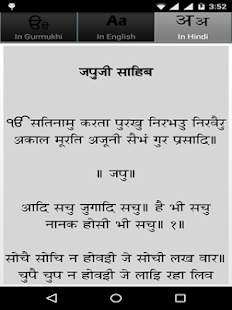 3:52
ੳ Aa अ अ
In Gurmukhi In English In Hindi
जपुजी साहिब
ੴ सतिनामु करता पुरखु निरभउ निरवैरु
अकाल मूरति अजूनी सैभं गुर प्रसादि॥
॥ जपु॥
आदि सचु जुगादि सचु॥ है भी सचु
नानक होसी भी सचु॥ १॥
सोचै सोचि न होवई जे सोची लख वार॥
चुपै चुप न होवई जे लाइ रहा लिव